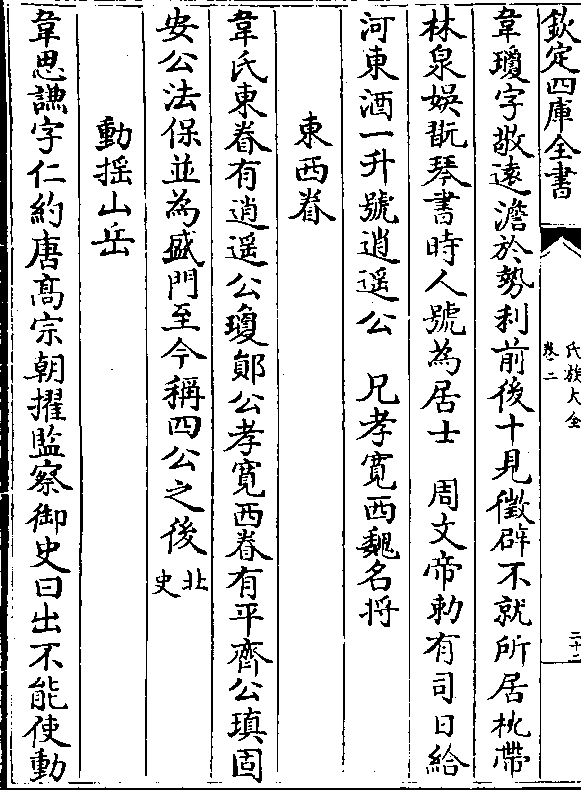 欽定四庫全書
氏族大全
卷二
三十二
韋瓊字敬遠澹於勢利前後十見徵辟不就所居枕帶
林泉娛翫琴書時人號為居士　周文帝勅有司日給
河東酒一升號逍遥公　兄孝寛西魏名將
東西眷
韋氏東眷有逍遥公瓊鄖公孝寛西眷有平齊公瑱固
安公法保並為盛門至今稱四公之後北史
動揺山岳
韋思謙字仁約唐髙宗朝擢監察御史曰出不能使動